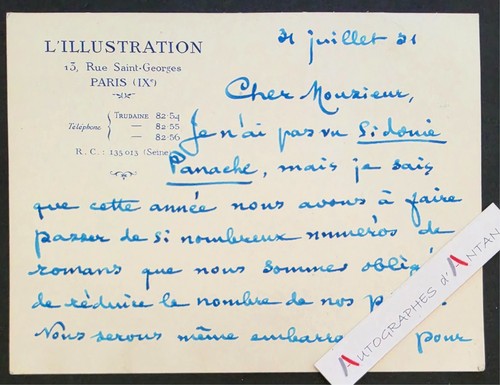 L'ILLUSTRATION
13, Rue Saint-Georges
PARIS (IXe)
Téléphone
TRUDAINE 82-54
— 82-55
— 82-56
R. C.: 135 013 (Seine)
31 juillet 31
Cher Monsieur,
Je n'ai pas vu Sidonie
Panache, mais je sais
que cette année nous avons à faire
passer de si nombreux numéros de
romans que nous sommes
de réduire le nombre de nos
Nous serons même pour
AUTOGRAPHES d'ANTAN